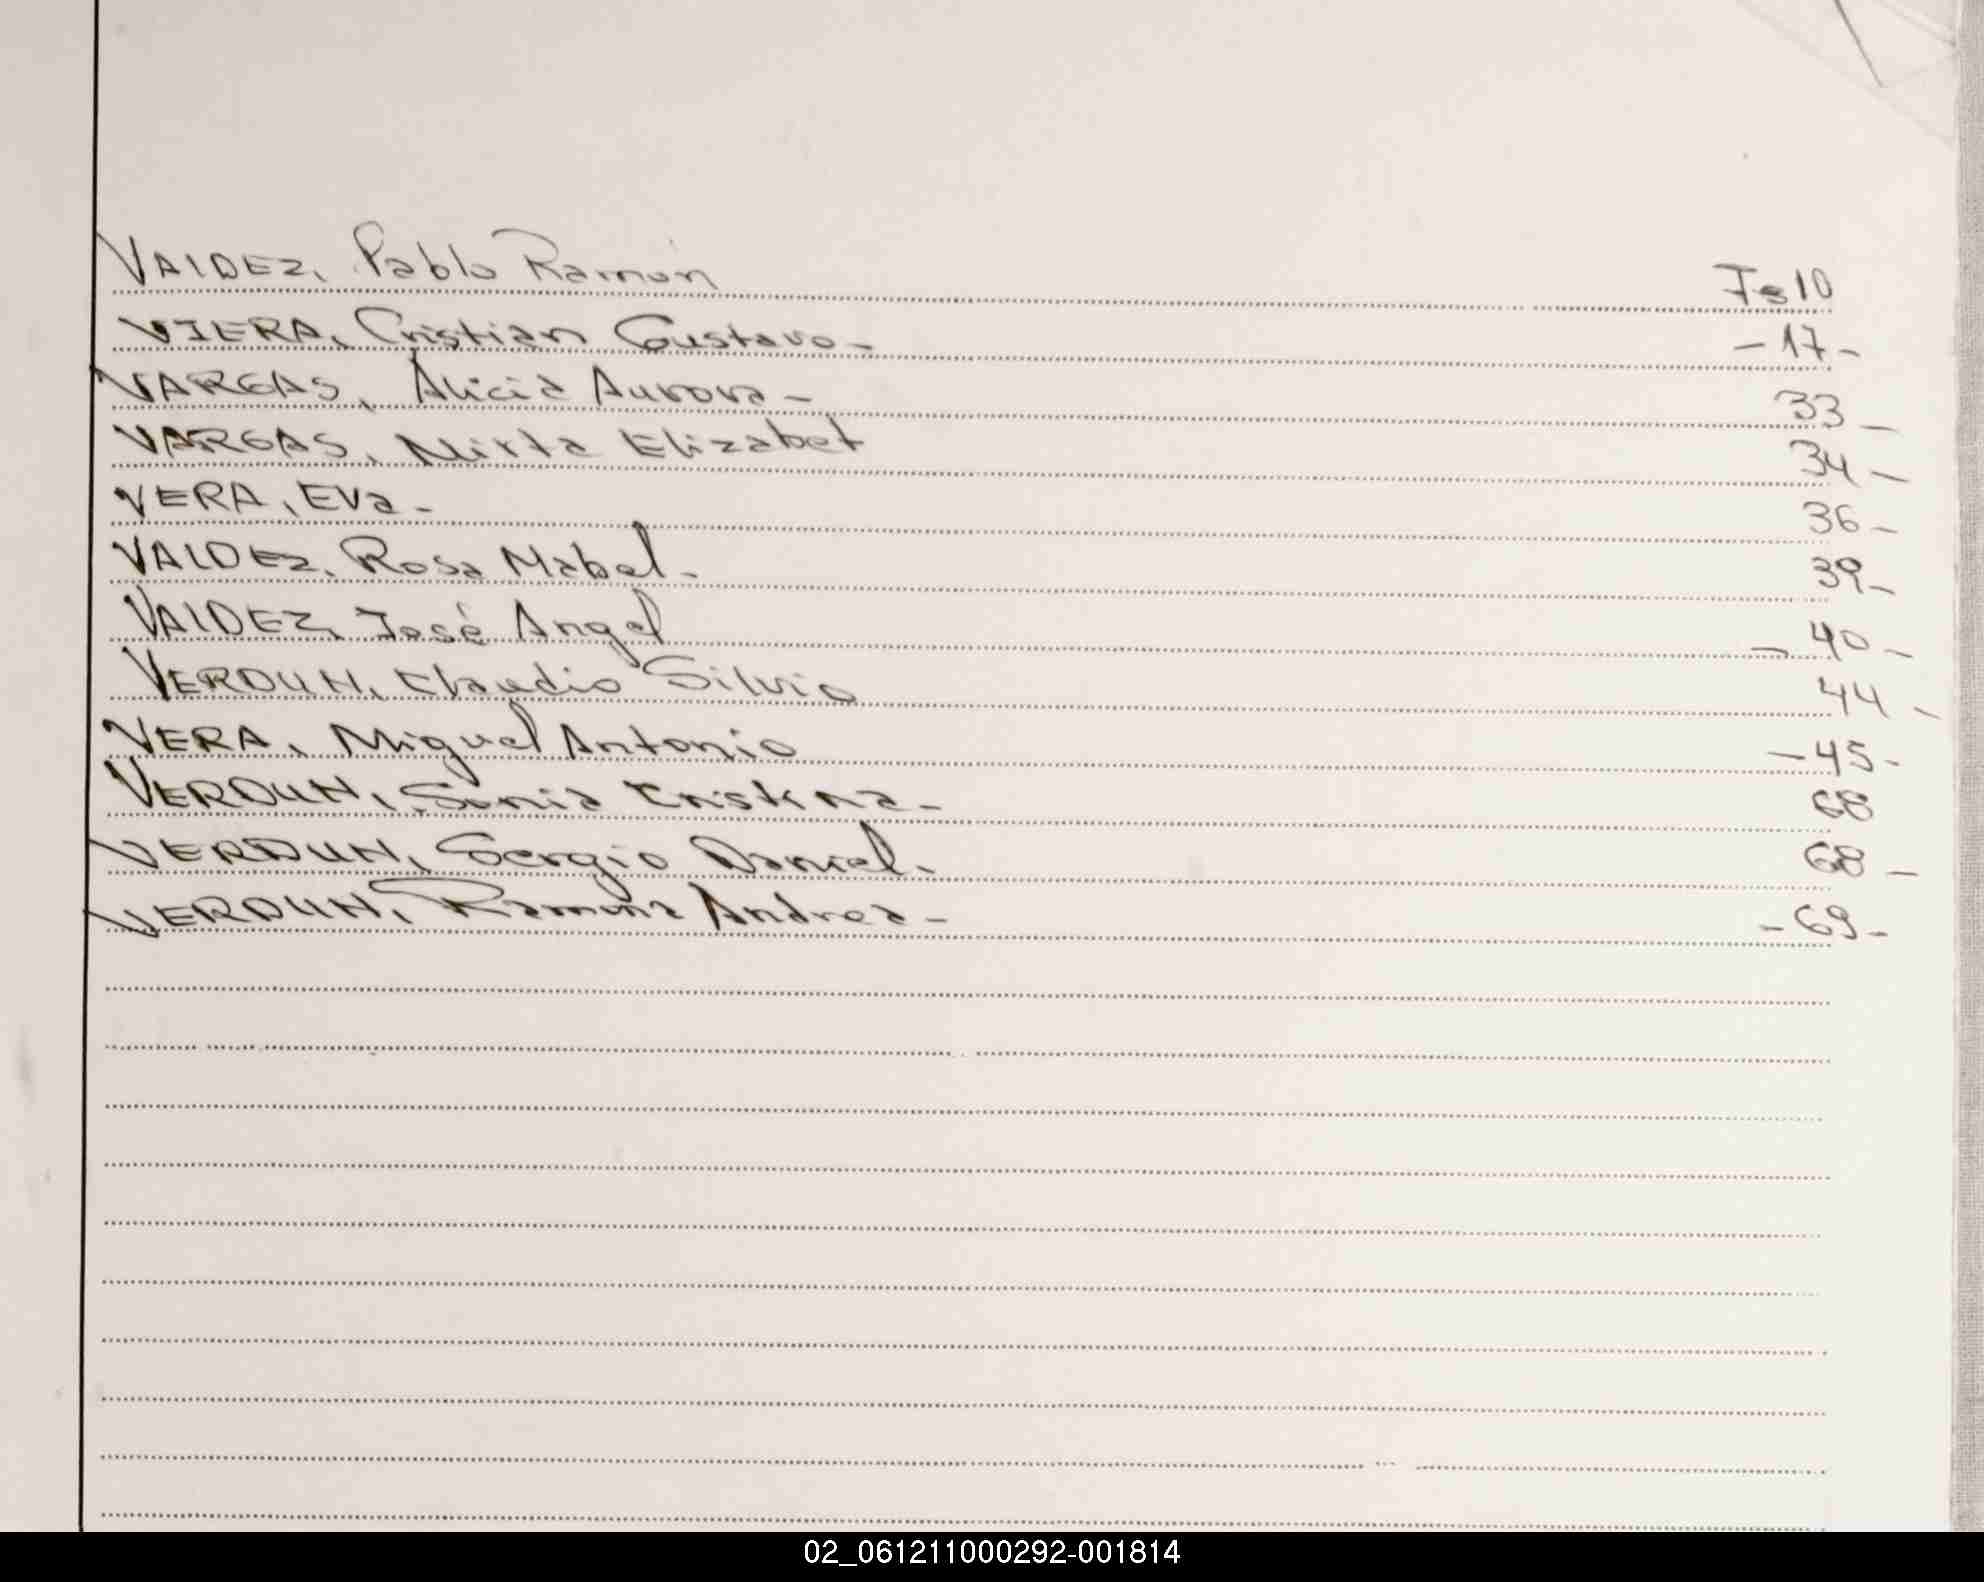 VALDEZ, Pablo Ramón Fs 10
VIERA, Cristian Gustavo - - 17 -
VARGAS, Alicia Aurora - 33 -
VARGAS, Mirta Elizabet 34 -
VERA, Eva - 36 -
VALDEZ, Rosa Mabel - 39 -
VALDEZ, José Angel - 40 -
VERDUN, Claudio Silvio 44 -
VERA, Miguel Antonio - 45 -
VERDUN, Sonia Cristina - 68
VERDUN, Sergio Daniel - 68 -
VERDUN, Ramona Andrea - - 69 -
02_061211000292-001814